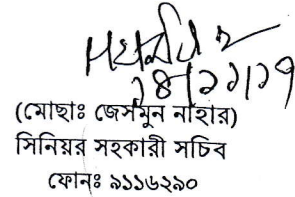 ১৪/১১/১৭
(মোছাঃ জেসমুন নাহার)
সিনিয়র সহকারী সচিব
ফোনঃ ৯১১৬২৯০